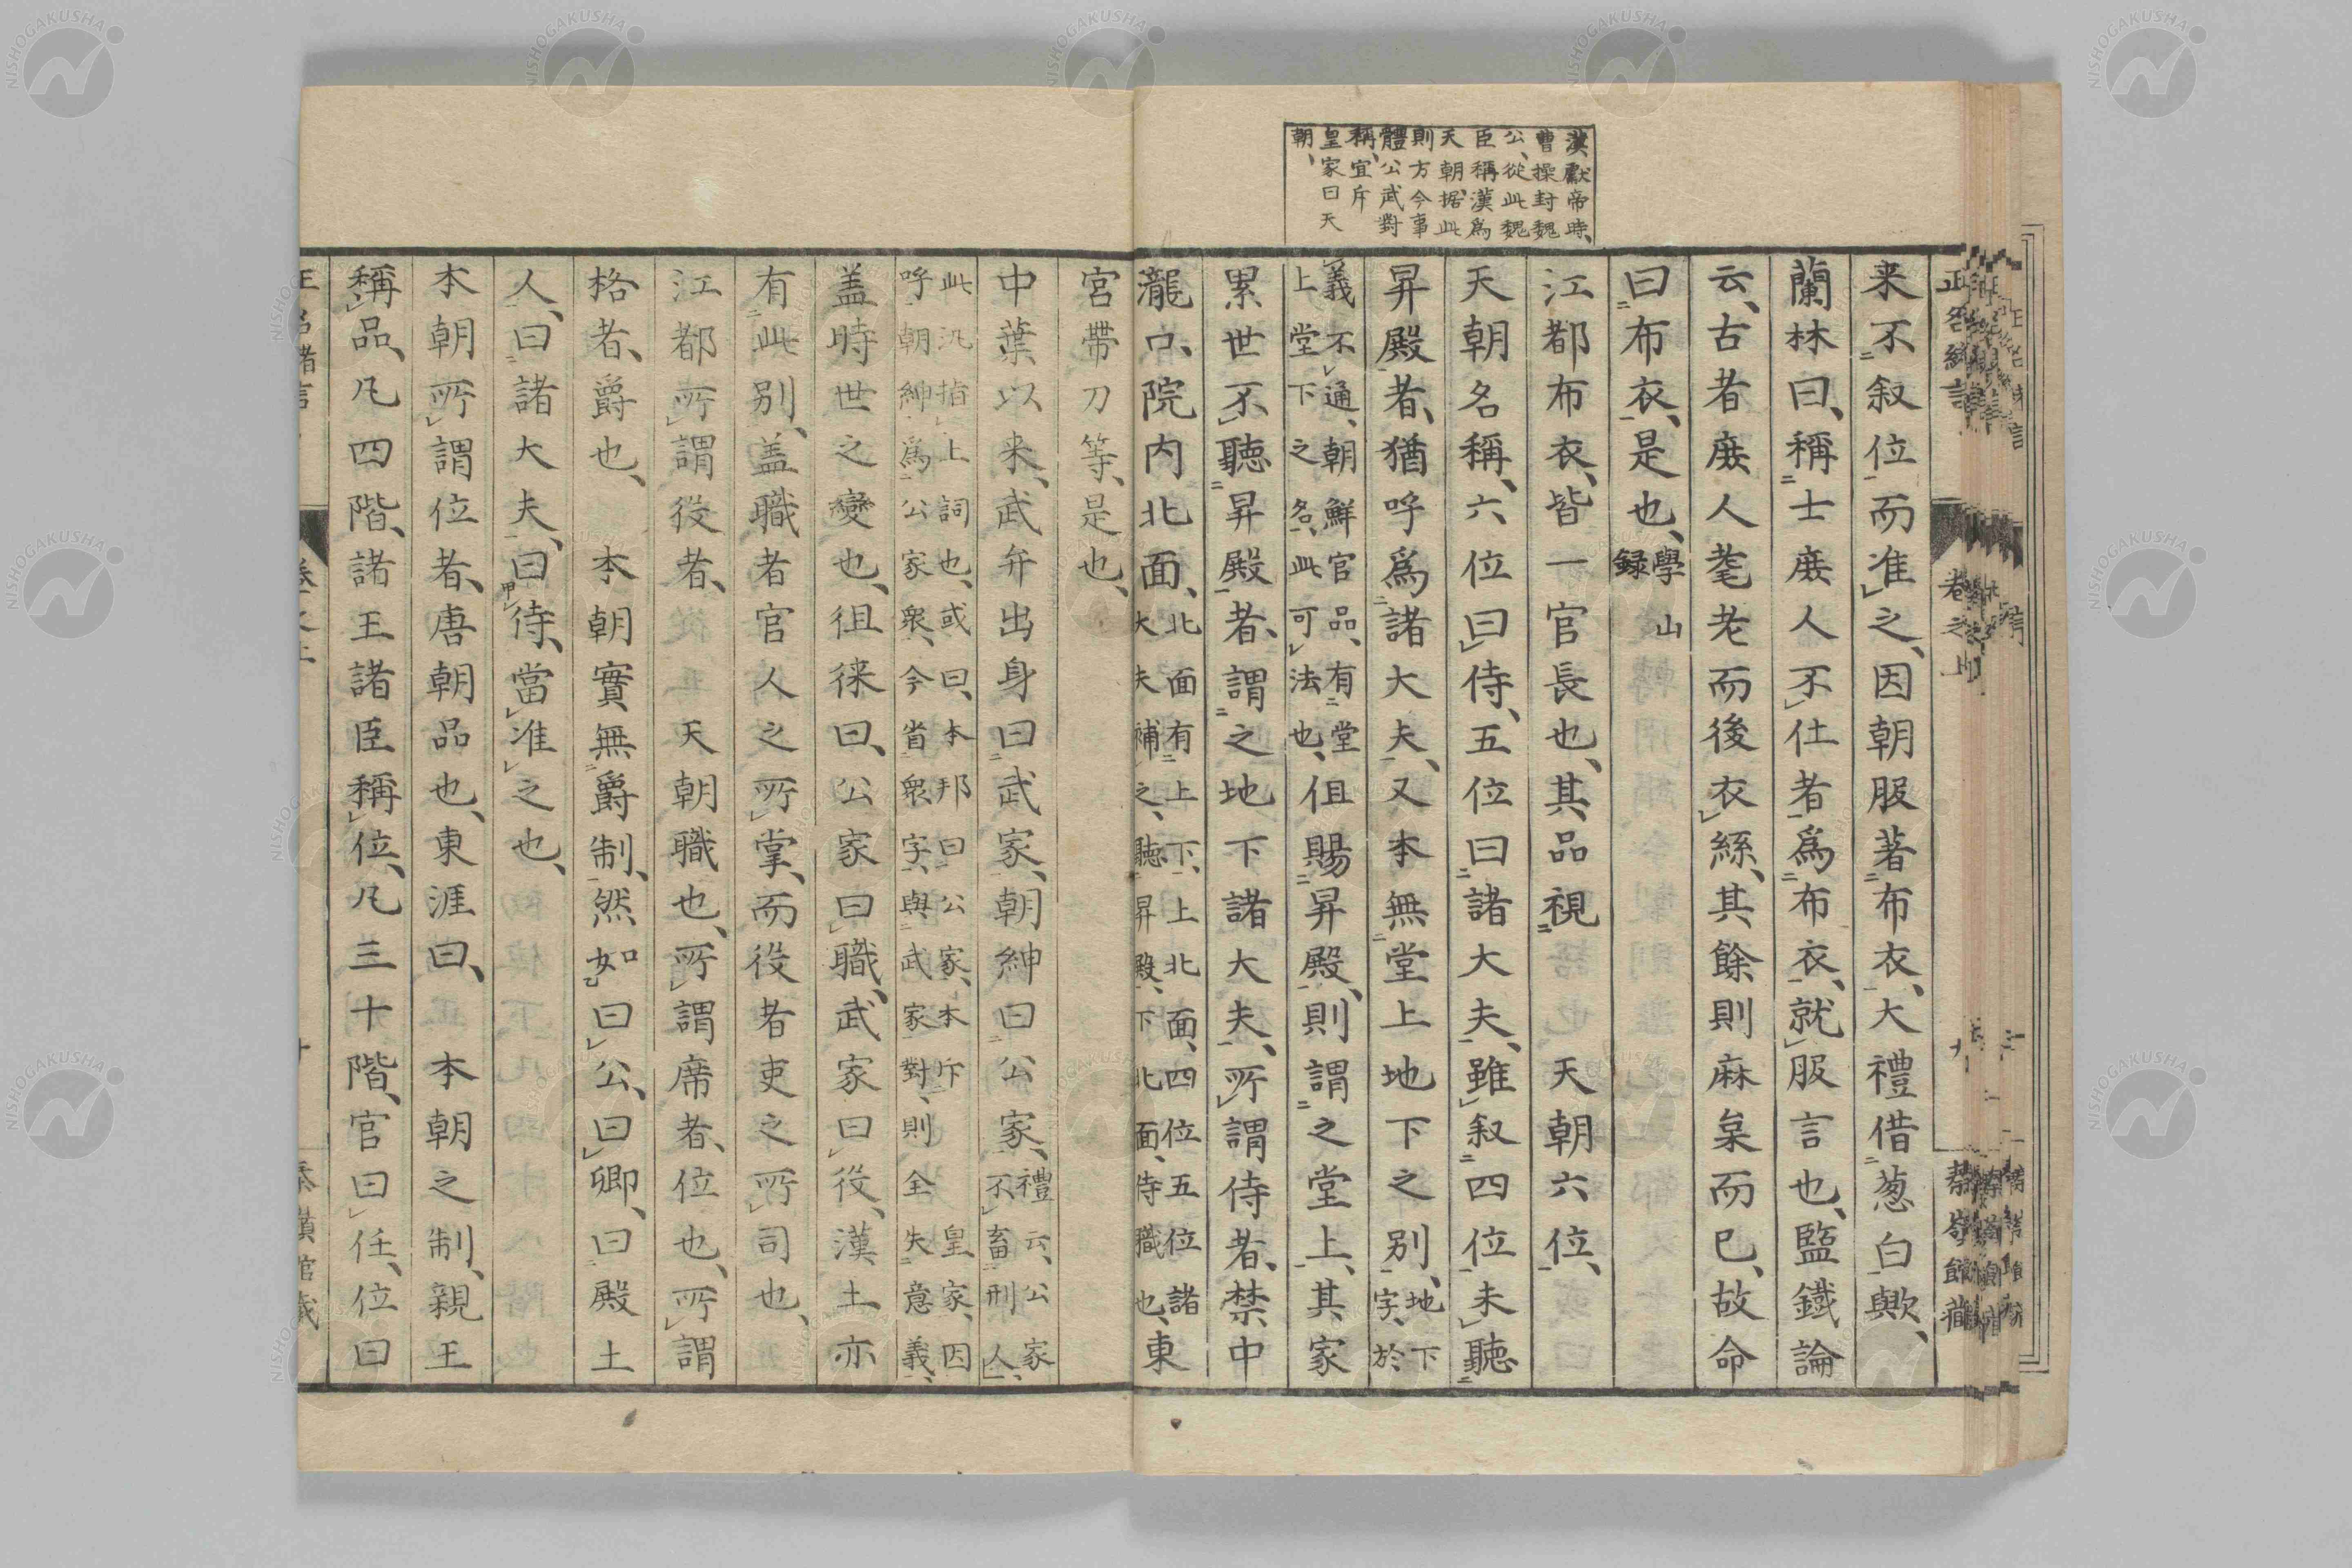 漢獻帝時、
曹操封魏
公、從此魏
臣稱漢爲
天朝、据此
則方今事
體公武對
稱、宜斥
皇家曰天
朝、
来不叙位而准之、因朝服著布衣、大禮借葱白歟、
蘭林曰、稱士庻人不仕者爲布衣、就服言也、鹽鐵論
云、古者庻人耄老而後衣絲、其餘則麻枲而已、故命
曰布衣、是也、學山録
江都布衣、皆一官長也、其品視 天朝六位、
天朝名稱、六位曰侍、五位曰諸大夫、雖叙四位未聽
昇殿者、猶呼爲諸大夫、又本無堂上地下之别、地下字、於
義不通、朝鮮官品、有堂上堂下之名、此可法也、但賜昇殿、則謂之堂上、其家
累世不聽昇殿者、謂之地下諸大夫、所謂侍者、禁中
瀧口、院内北面、北面有上下、上北面、四位五位諸大夫補之、聽昇殿、下北面、侍職也、東
宮帶刀等、是也、
中葉以来、武弁出身曰武家、朝紳曰公家、禮云、公家不畜刑人、
此汎指上詞也、或曰、本邦曰公家、本斥皇家、因呼朝紳爲公家衆、今省衆字、與武家對、則全失意義、
盖時世之變也、徂徠曰、公家曰職、武家曰役、漢土亦
有此别、盖職者官人之所掌、而役者吏之所司也、
江都所謂役者、 天朝職也、所謂席者、位也、所謂
格者、爵也、 本朝實無爵制、然如曰公、曰卿、曰殿上
人、曰諸大夫、曰侍、當准之也、
本朝所謂位者、唐朝品也、東涯曰、 本朝之制、親王
稱品、凡四階、諸王諸臣稱位、凡三十階、官曰任、位曰